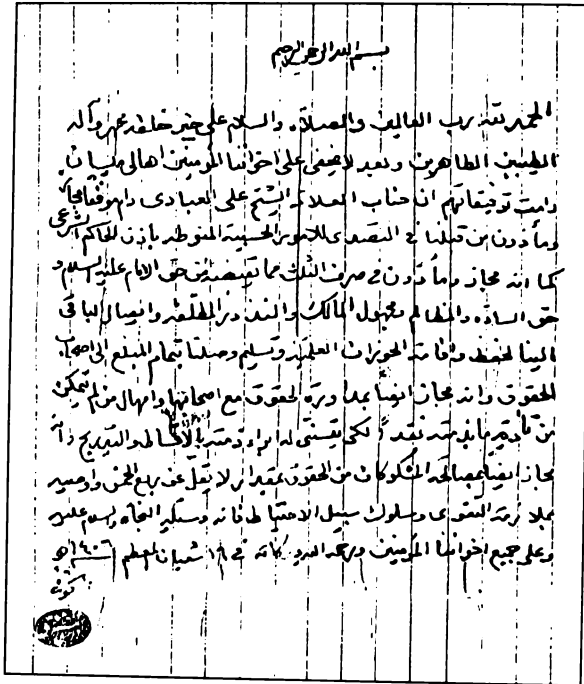 بسم الله الرحمن الرحيم
الحمد لله رب العالمين والصلاة والسلام على خير خلقه محمد وآله
الطيبين الطاهرين وبعد لا يخفى على اخواننا المؤمنين اهالي
دامت توفيقاتهم ان جناب العلامة الشيخ على العبادى دام موفقا مجاز
ومأذون من قبلنا في التصدى للامور الحسبية المنوطة باذن الحاكم الشرعي
كما انه مجاز ومأذون في صرف الثلث مما يقبضه من حق الامام عليه السلام و
حق السادة والمظالم ومجهول المالك والنذور المطلقة وايصال الباقى
الينا لحفظ واقامة الحوزات العلمية وتسليم وصلنا بتمام المبلغ الى اصحاب
الحقوق وانه مجاز ايضا بمداورة الحقوق مع اصحابها وامهال من لم يتمكن
من تأدية ما بذمته نقداً لكي يتسنى له ابراء ذمته بالاقساط والتدريج وانه
مجاز ايضا بمصالحة المشكوكات من الحقوق بمقدار لا يقل عن ربع الخمس واوصيه
بملازمة التقوى وسلوك سبيل الاحتياط فانه وسيلة النجاة والسلام عليه
وعلى جميع اخواننا المؤمنين ورحمة الله وبركاته في ١٩ شعبان المعظم ١٤٠٦ هـ